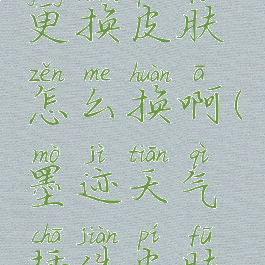 更换皮肤
zěn me huàn ā
怎么换啊(
mò jì tiān qì
墨迹天气
chā jiàn pí fū
插件皮肤